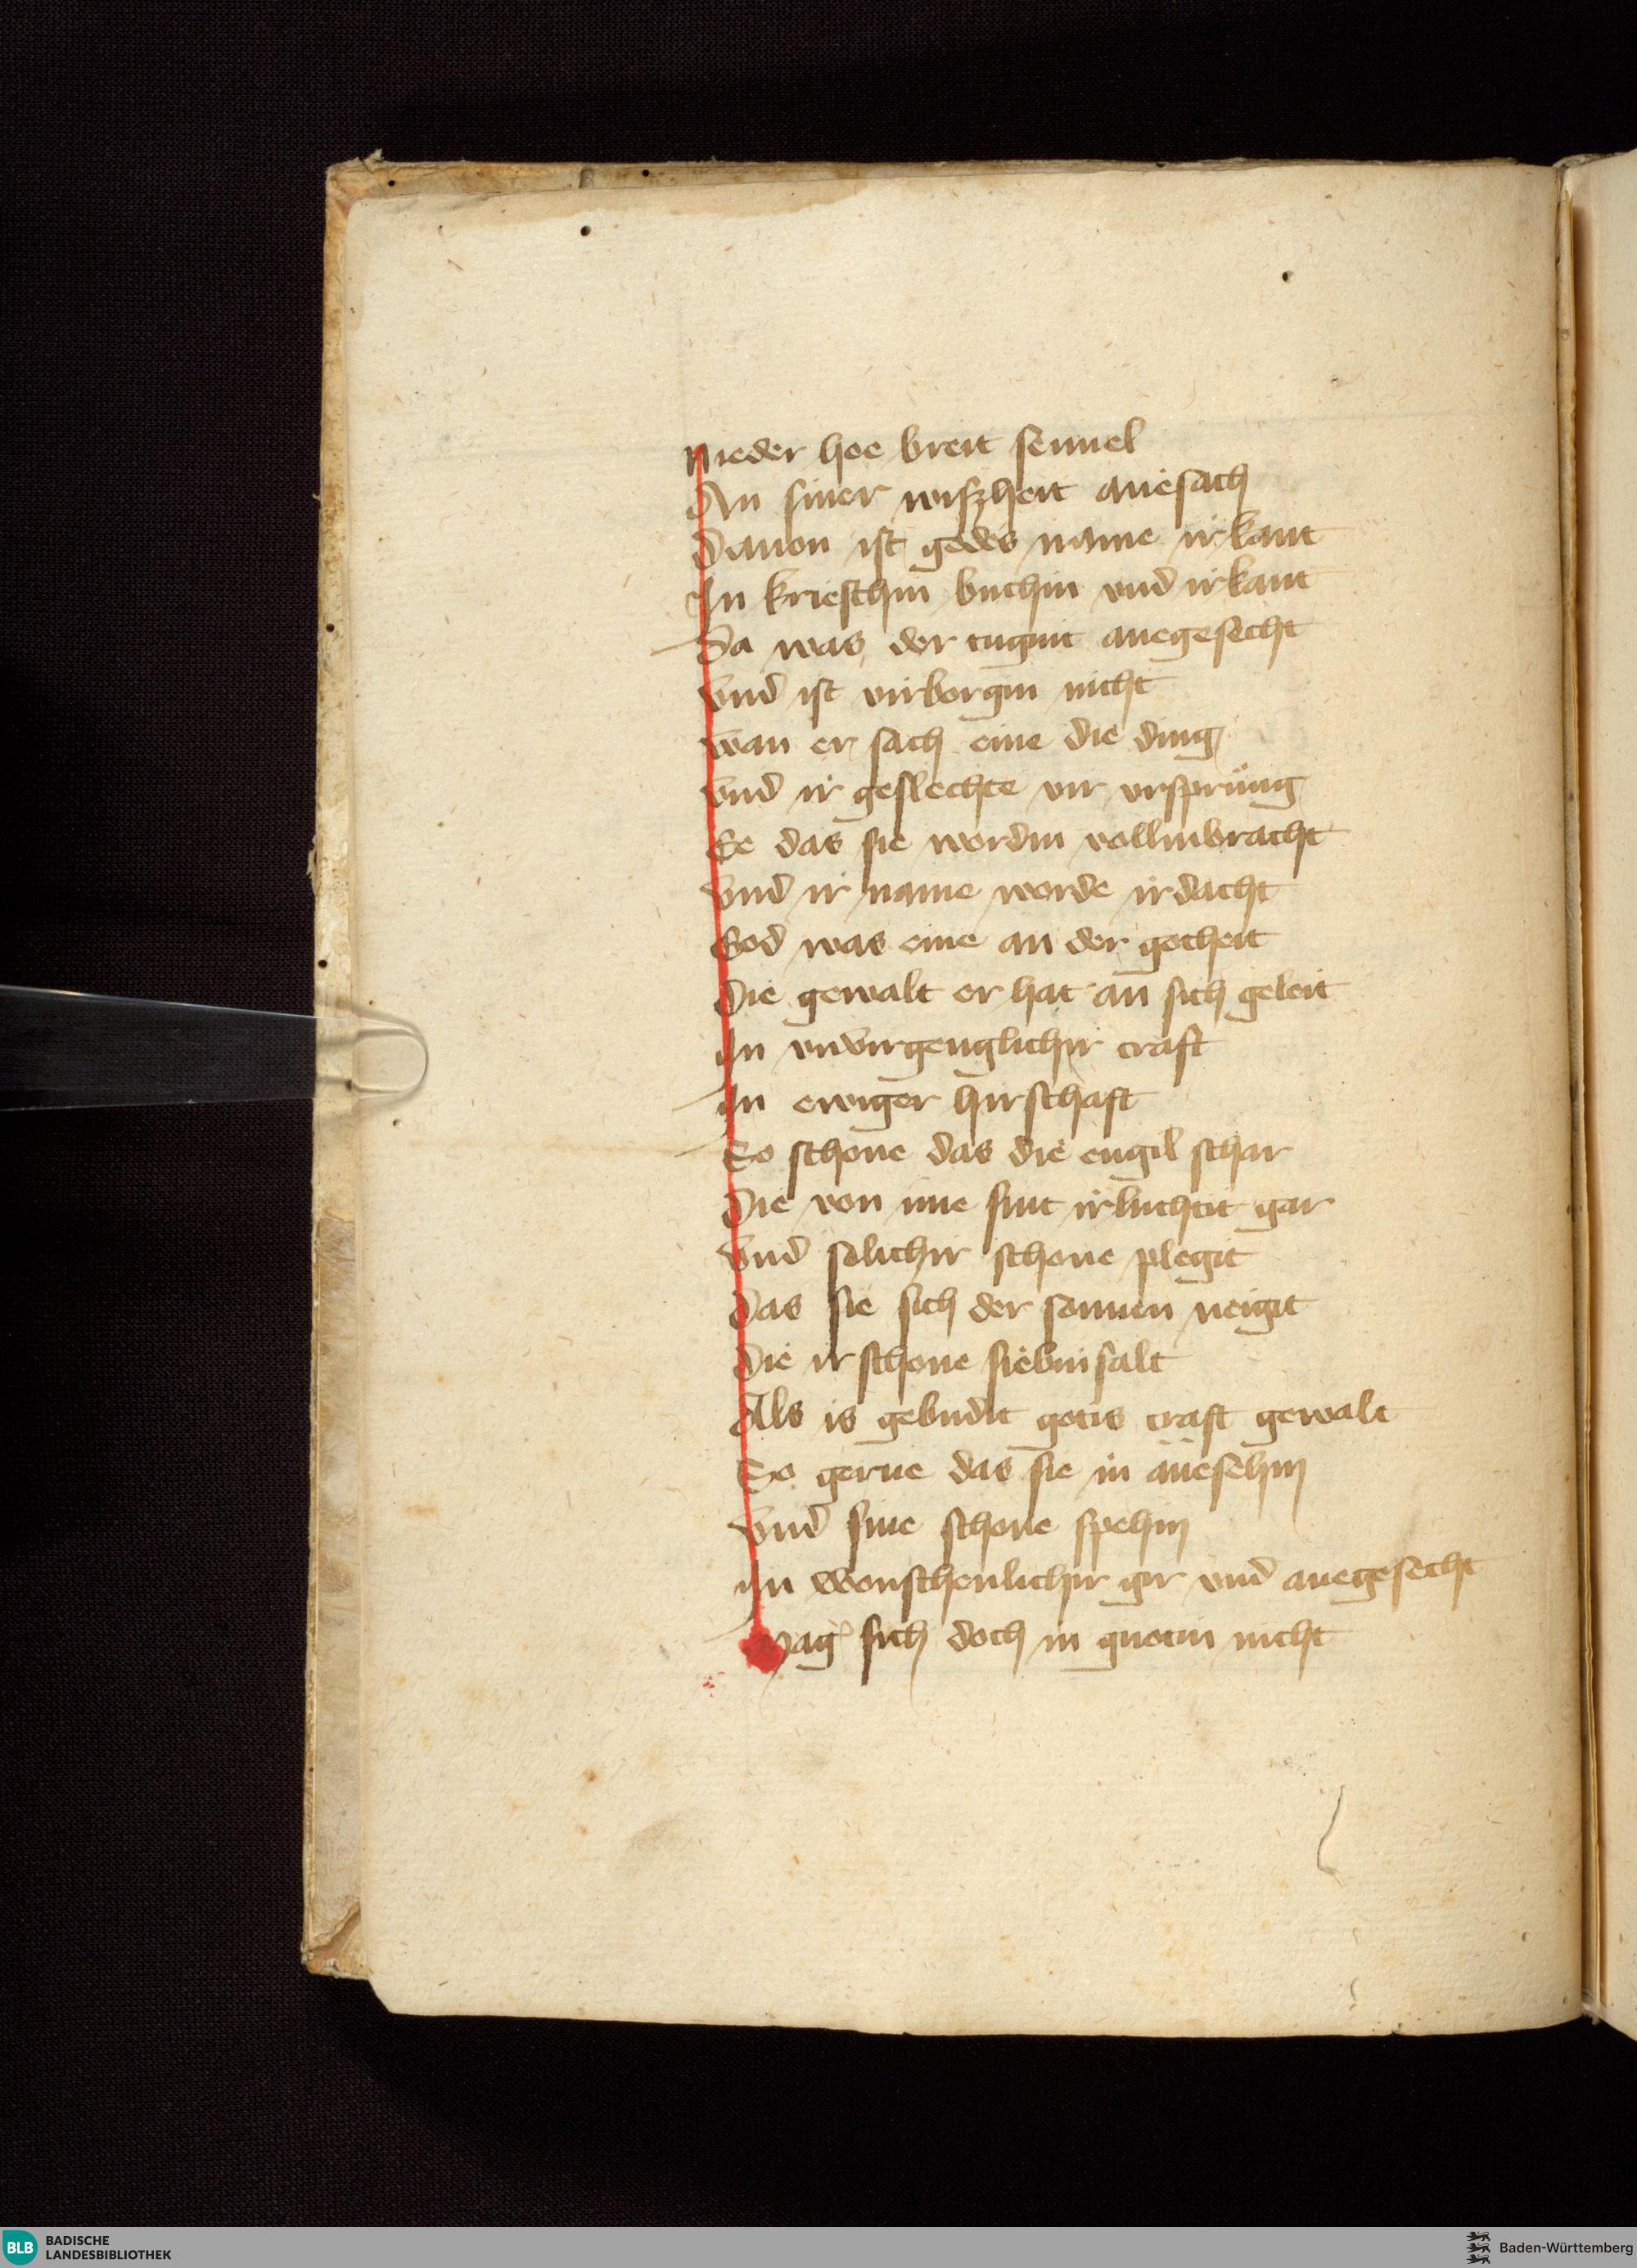 Nieder hoe breit sennel
An siner wiszheit anesach
Dauon ist godes name irkant
In krieschin buchin vnd irkant
Da was der tugint anegesecht
Vnd ist virborgin nicht
Wan er sach eine die ding
Vnd ir geslechte vir vrsprung
Ee das sie wordin vollinbracht
Vnd ir name worde irdacht
God was eine an der gotheit
Die gewalt er hat an sich geleit
In vnvirgenglichir craft
In ewiger hirschaft
So schone das die engil schar
Die von ime sint irluchtit gar
Vnd solichir schone plegit
Das sie sich der sonnen neigit
Die ir schone siebinfalt
Als is gebudit gotis craft gewalt
So gerne das sie in anesehin
Vnd sine schone spehin
In wonschenlichir gir vnd anegesecht
Mag sich doch in guotin nicht
BLB BADISCHE
LANDESBIBLIOTHEK
Baden-Württemberg